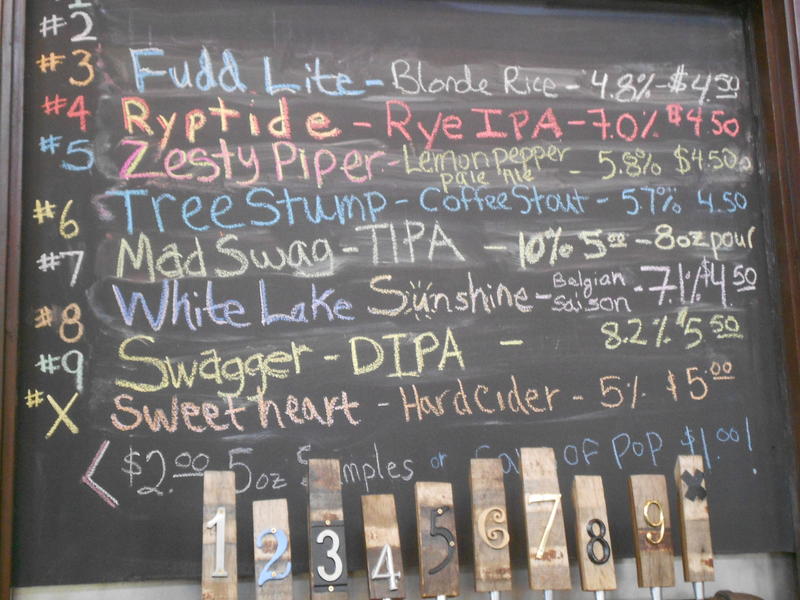 #2
#3 Fudd Lite - Blonde Rice - 4.8% - $4.50
#4 Ryptide - Rye IPA - 7.0% $4.50
#5 Zesty Piper - Lemon pepper pale Ale - 5.8% $4.50
#6 Tree Stump - Coffee Stout - 5.7% 4.50
#7 Mad Swag - TIPA - 10% 5.00 - 8oz pour
White Lake Sunshine - Belgian Saison - 7.1% $4.50
#8 Swagger - DIPA - 8.2% $5.50
#9 Sweetheart - Hard Cider - 5% $5.00
#X
< $2.00 5oz Samples or of Pop $1.00!
1 2 3 4 5 6 7 8 9 X